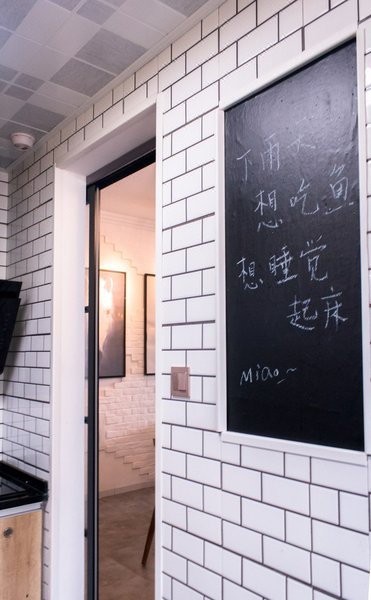 下雨天
想吃鱼
想睡觉
起床
Miao~